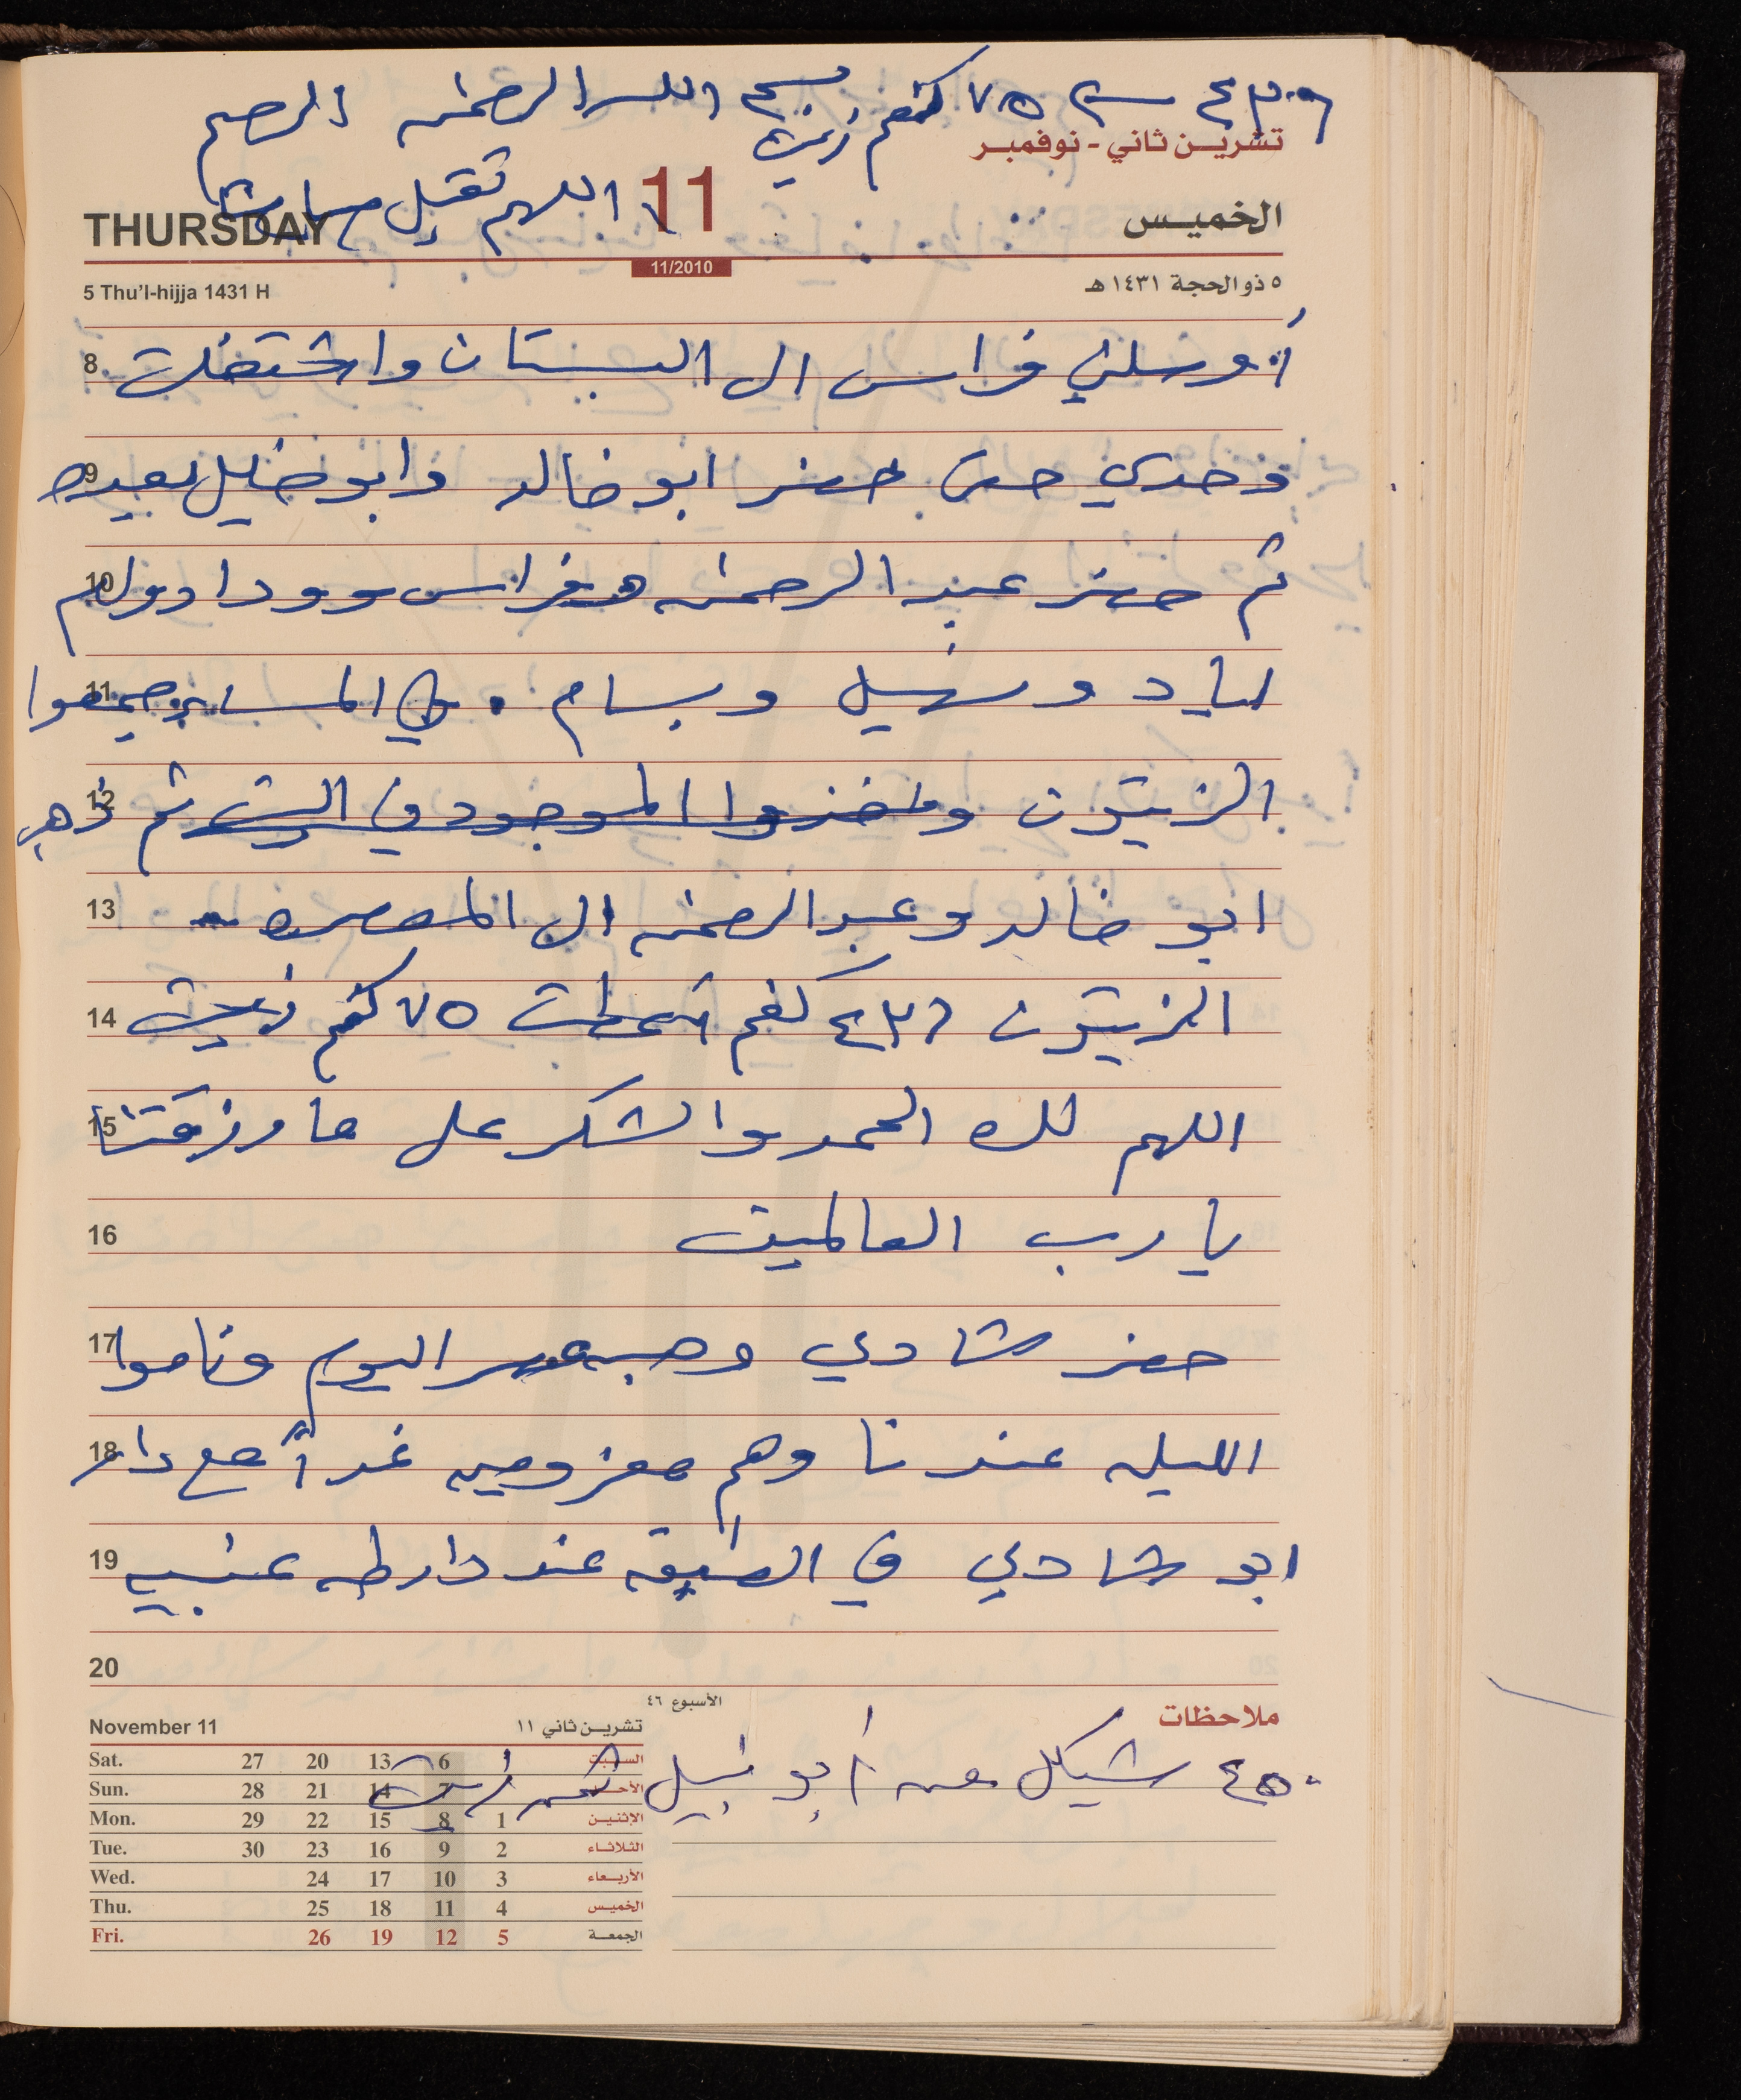 بسم الله الرحمن الرحيم
٧٥ كغم زيت
تشرين ثاني - نوفمبر
اللهم تقبل
THURSDAY 11 الخميس
11/2010
5 Thu'l-hijja 1431 H ٥ ذو الحجة ١٤٣١ هـ
8 أوصلني فراس الى البستان واشتغلت
9 وحدي حتى حضر ابو خالد وابو خليل بعيده
10 ثم حضر عبد الرحمن وفراس ووداد وولدهم
11 اياد ونبيل وبسام . في المساء جمعوا
12 الزيتون واخذوا الموجود في البيت ثم ذهب
13 ابو خالد وعبد الرحمن الى المعصره
14 الزيتون ٤٣٦ كغم اعطت ٧٥ كغم زيت
15 اللهم لك الحمد والشكر على ما رزقتنا
16 يا رب العالمين
17 حضر شادي وهبه عصر اليوم وناموا
18 الليله عندنا وهم معزومين غداً مع دار
19 ابو شادي في الضيقه عند دار طه عنبيه
20
الأسبوع ٤٦
ملاحظات
٤٥٠ شيكل من أبو نبيل ثمن زيت
November 11 تشرين ثاني ١١
Sat. 27 20 13 6 السبت
Sun. 28 21 14 7 الأحد
Mon. 29 22 15 8 1 الإثنين
Tue. 30 23 16 9 2 الثلاثاء
Wed. 24 17 10 3 الأربعاء
Thu. 25 18 11 4 الخميس
Fri. 26 19 12 5 الجمعة